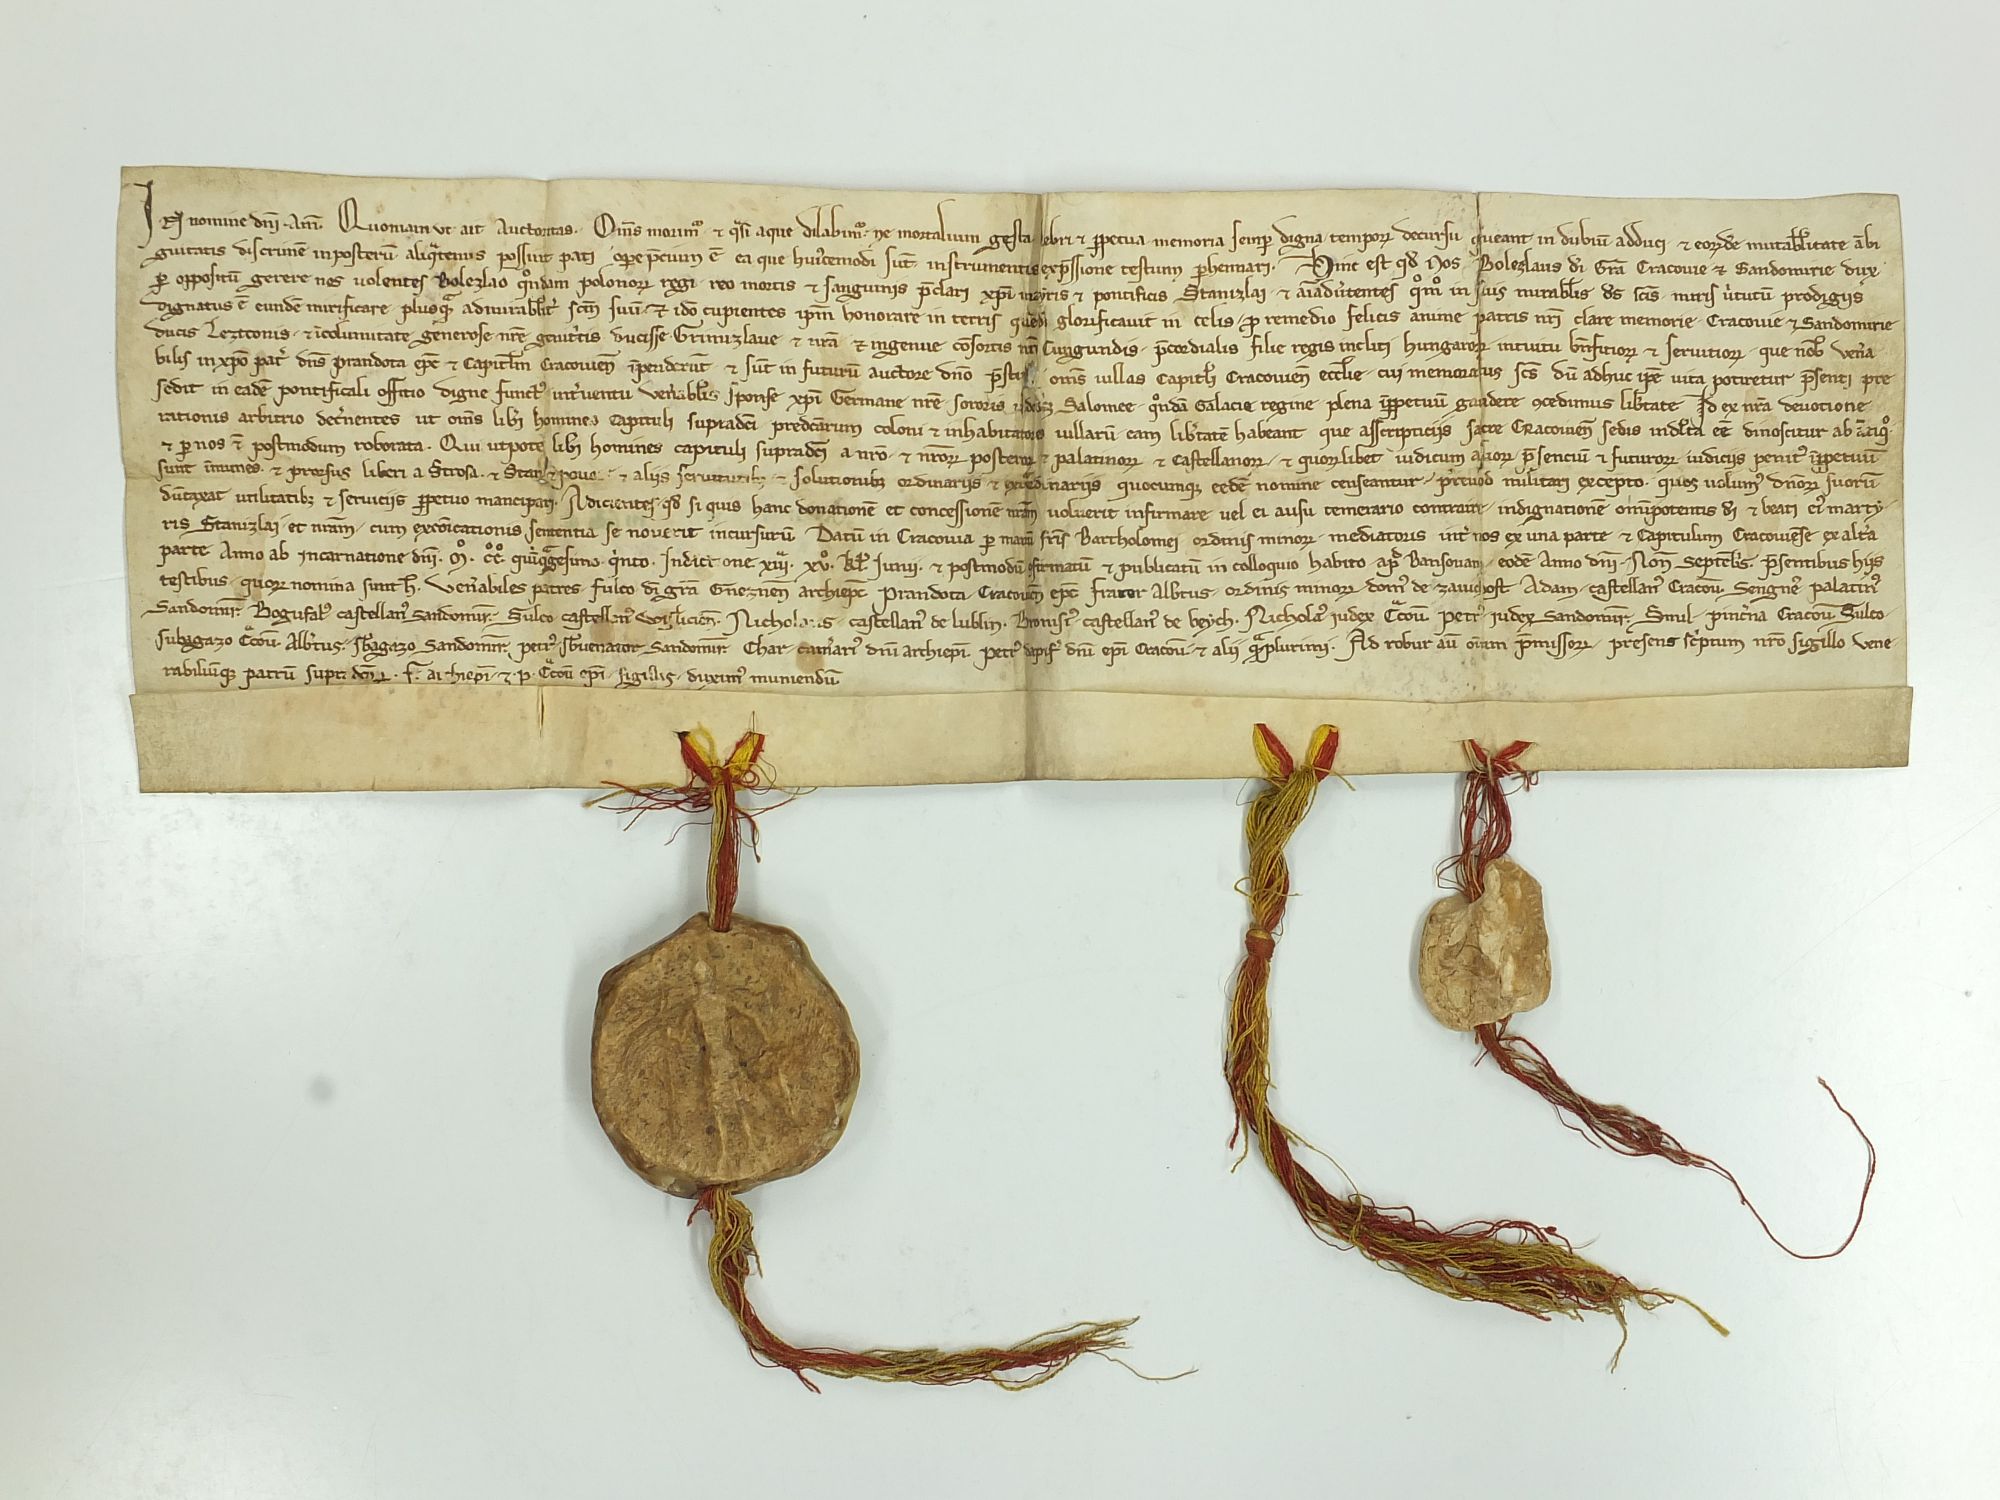 In nomine dñi. Am̃. Quoniam ut ait Auctoritas. Om̃s morimur & q̃si aque dilabimur. ne mortalium gesta celebri & ꝑpetua memoria semꝑ digna temporꝝ decursu queant in dubiũ adduci & eorũdẽ mutabilitate ãbi
guitatis discrimẽ inposterũ aliq̃tenus possint pati opere p̃cium ẽ ea que huiꝰcemodi sũt instrumentis exp̃ssione testium ꝑhennari. Hinc est qđ Nos Bolezlaus dĩ Grã Cracouie & Sandomirie dux
ꝑ oppositũ gerere nos uolentes Bolezlao q̃ndam polonorꝝ regi reo mortis & sanguinis p̃clari xp̃i martyris & pontificis Stanizlai & aĩaduertentes qm̃o in suis mirabilis ds̃ scĩs miris uirtutũ prodigiis
dignatus ẽ eundẽ mirificare plusq̃ admirabilit̃ scm̃ suũ & idõ cupientes ip̃m honorare in terris quẽ dš glorificauit in celis ꝑ remedio felicis anime patris nr̃i clare memorie Cracouie & Sandomirie
ducis Lezconis & ĩcolumitate generose nr̃e genitricis ducisse Grimizlaue & nr̃a & ingenue consortis nr̃e Cungundis p̃cordialis filie regis incliti hungarorꝝ intuitu bñficiorꝝ & seruitiorꝝ que nob̃ ueñra
bilis in xp̃o pat̃ dñs prandota ep̃c & Capitulm̃ Cracouien̄ ĩpenderũt & sũt in futurũ auctore dño p̃stituri om̃s uillas Capituli Cracouien̄ eccl̃ie cui memoratus scs̃ dũ adhuc ip̃e uita potiretur p̃senti pre
sedit in eadẽ pontificali offitio digne functus int̃uentu uenerabilis sponse xp̃i Germane nr̃e sororis Salomee q̃ndã Galacie regine plena ĩꝑpetuũ gaudere ɔcedimus libertate Id ex nr̃a deuotione
rationis arbitrio decernentes ut om̃s lib̃i homines Capituli supradc̃i predictarum coloni & inhabitatores uillarũ eam libertatẽ habeant que asscripticiis sacre Cracouien̄ sedis indulta eẽ dinoscitur ab ãtiquo
& ꝑ nos ẽ postmodum roborata. Qui utpote lib̃i homines capituli supradc̃i a nr̃o & nr̃orꝝ posterorꝝ & palatinorꝝ & Castellanorꝝ & quorꝝlibet iudicum aliorꝝ p̃senciũ & futurorꝝ iudiciis penitꝰ ĩꝑpetuũ
sunt ĩmunes & prorsus liberi a Strosa & Stan & pouoz & aliis seruitutibꝫ & solutionibꝫ ordinariis & extraordinariis quocumqꝫ eedẽ nomine censeantur preuod militari excepto quos uolumꝰ dñorꝝ suorũ
dũtaxat utilitatibꝫ & seruiciis ꝑpetuo mancipari. Adicientes qđ si quis hanc donationẽ et concessionẽ nr̃am uoluerit infirmare uel ei ausu temerario contraire indignationẽ om̃ipotentis dĩ & beati eiꝰ marty
ris Stanizlai et nr̃am cum excõicationis sententia se nouerit incursurũ Datũ in Cracouia ꝑ manũ fr̃is Bartholomei ordinis minorꝝ mediatoris int̃ nos ex una parte & Capitulum Cracouiẽse ex alt̃a
parte Anno ab incarnatione dñi. M. CC. quĩquagesimo q̃nto. Indictione xiii. xv. kl̃ Iunii. & postmodũ ɔfirmatũ & publicatũ in colloquio habito apđ eodẽ Anno dñi Noñ Septembris. p̃sentibus hiis
testibus quorꝝ nomina sunt h̃. Uenerabiles patres Fulco dĩ grã Gneznen̄ archiep̃c Prandota Cracouien̄ ep̃c Frater Alb̃tus ordinis minorꝝ domꝰ de zauichost Adam castellanꝰ Cracou̅. Sengneuꝰ palatinꝰ
Sandomir̃. Bogufalꝰ castellanꝰ Sandomir̃. Sulco castellanꝰ Wislicien̄. Nicholaus castellanꝰ de lublin. castellanꝰ de beych. Nicholaꝰ iudex Cracou̅ petrꝰ iudex Sandomir̃. Smil pincerna Cracou̅ Sulco
subagazo Cracou̅ Alb̃tus subagazo Sandomir̃ petrꝰ subuenator Sandomir̃ Char camerariꝰ dñi archiep̃i petrꝰ dapiferꝰ dñi ep̃i Cracou̅ & alii q̃mplurimi. Ad robur aũ om̃ium p̃missorꝝ presens sc̃ptum nr̃o sigillo uene
rabiliũqꝫ patrũ supradc̃orꝝ. f. archiep̃i & p. Cracou̅ ep̃i sigillis duximꝰ muniendũ